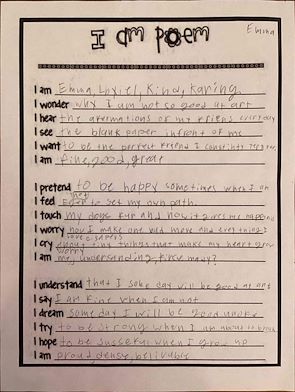 I am poem
Emma
I am Emma, Loyiel, Kind, Karing,
I wonder why I am not so good at art
I hear the afermations of my friends everyday
I see the blank paper infront of me
I want to be the perfect friend I constintly try for
I am fine, good, great
I pretend to be happy sometimes when I am not
I feel to set my own path
I touch my dogs fur and
I worry how I make one bad move and everything I
love disapers
I cry about tiny things that make my heart grow
worry
I am me, understanding,
I understand that I some day will be good at art
I say I am fine when I am not
I dream some day I will be good
I try to be strong when I am about to break
I hope to be sussesful when I grow up
I am proud,